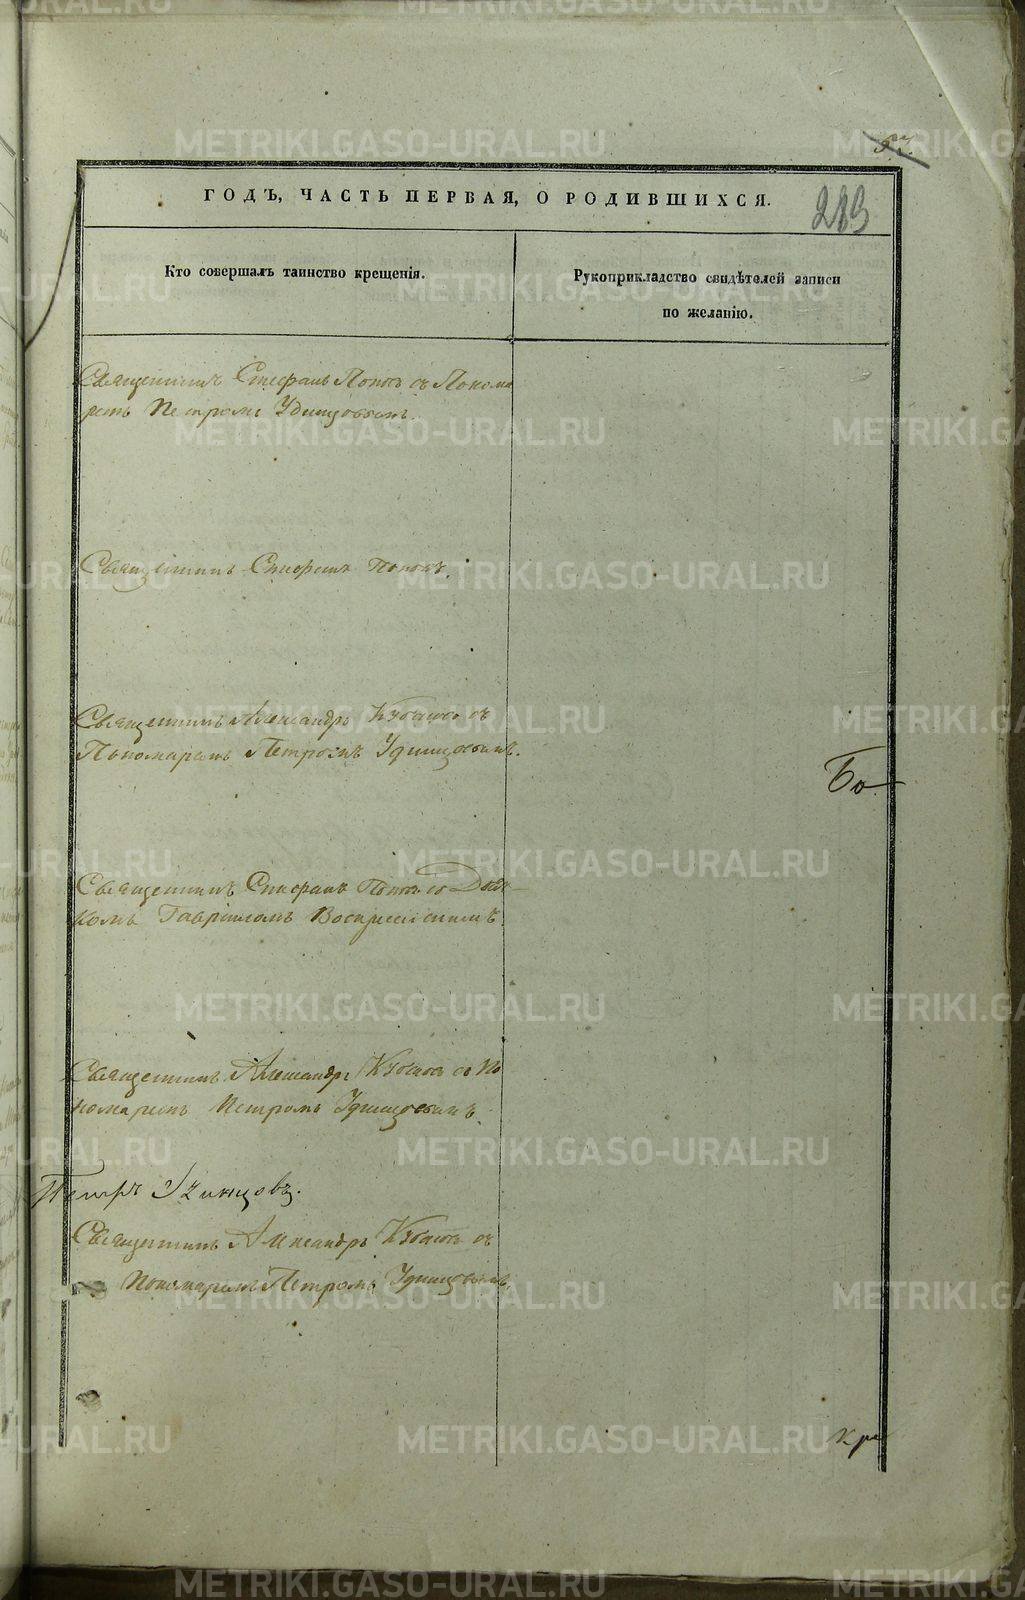 ГОДЪ, ЧАСТЬ ПЕРВАЯ, О РОДИВШИХСЯ.
283
Кто совершалъ таинство крещенія.
Рукоприкладство свидѣтелей записи
по желанію.
Священникъ Стефанъ Поповъ съ Понома
ремъ Петромъ Удинцовымъ.
Священникъ Стефанъ Поповъ.
Священникъ Александръ съ
Пономаремъ Петромъ Удинцовымъ.
Бо
Священникъ Стефанъ Поповъ со Дьяч-
комъ Гавріиломъ Воскресенскимъ.
Священникъ Александръ съ По
номаремъ Петромъ Удинцовымъ.
Петръ Удинцовъ.
Священникъ Александръ съ
Пономаремъ Петромъ Удинцовымъ.
METRIKI.GASO-URAL.RU